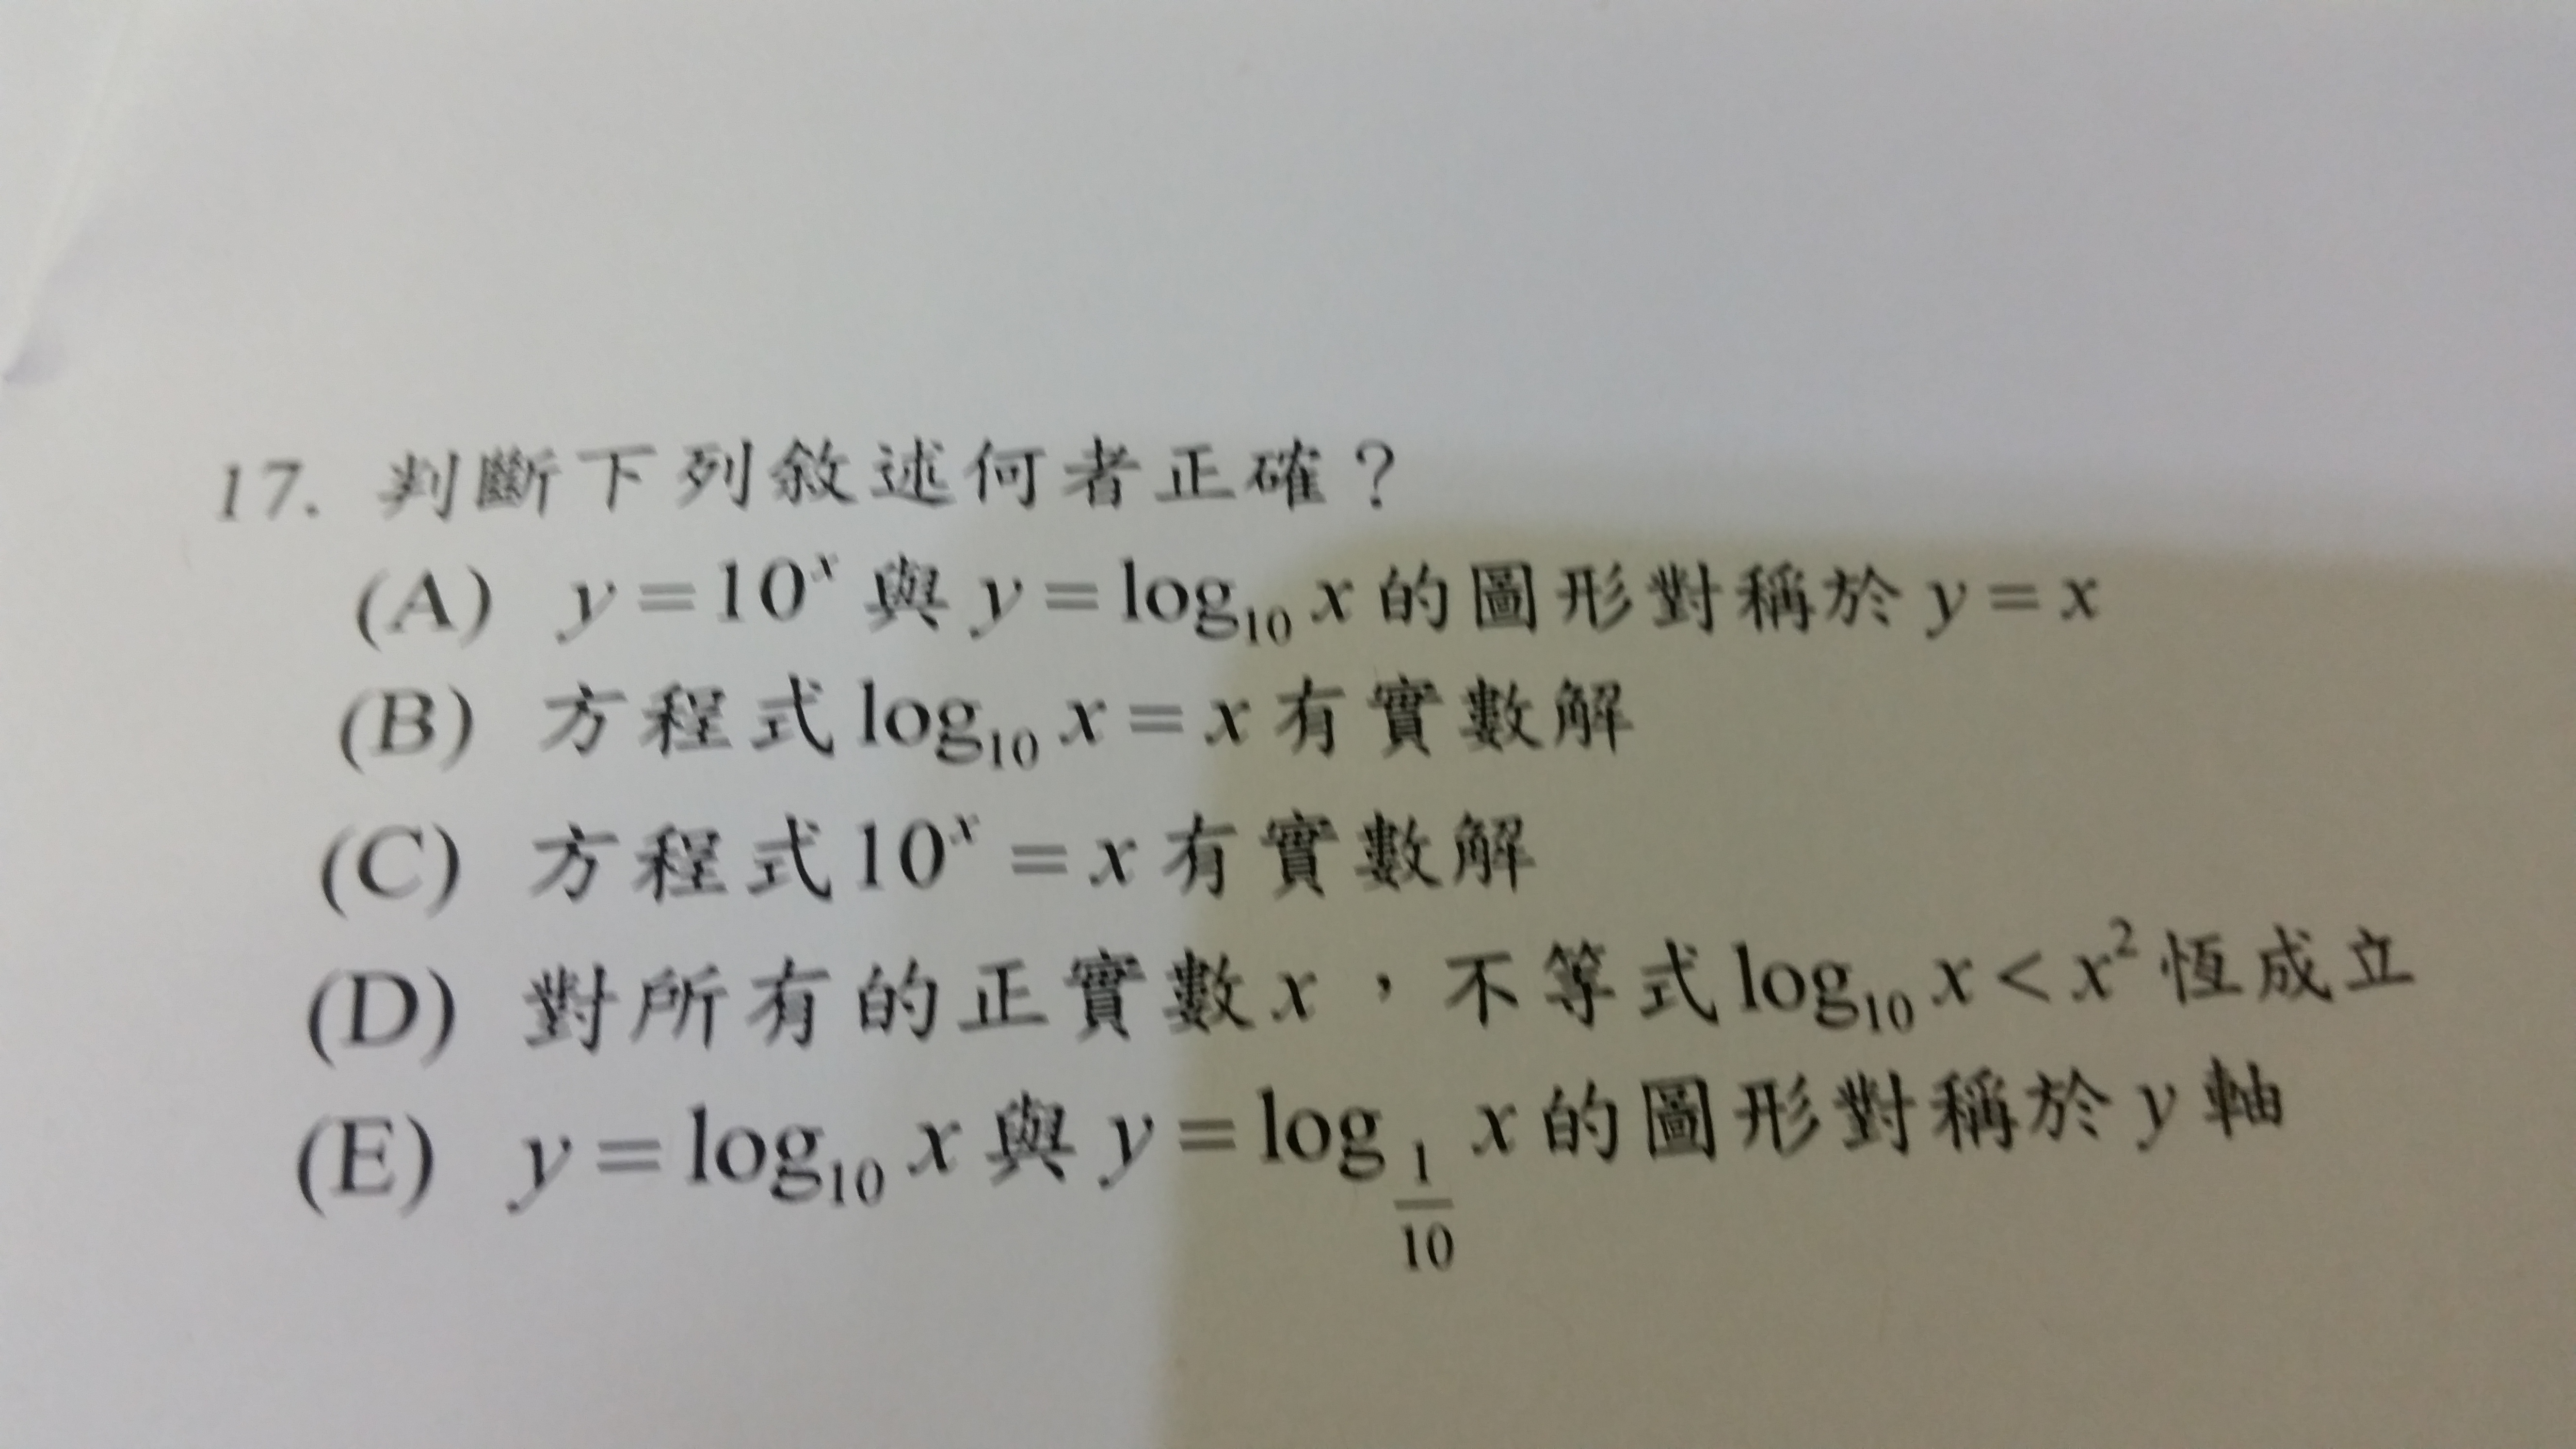 17. 判斷下列敘述何者正確？
(A) y=10ˣ 與 y=log₁₀ x 的圖形對稱於 y=x
(B) 方程式 log₁₀ x=x 有實數解
(C) 方程式 10ˣ=x 有實數解
(D) 對所有的正實數 x，不等式 log₁₀ x<x² 恆成立
(E) y=log₁₀ x 與 y=log_{1/10} x 的圖形對稱於 y 軸